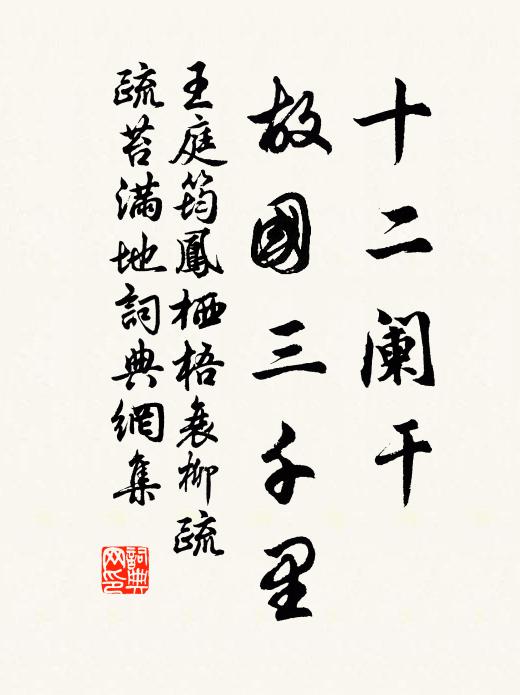 十二阑干
故國三千里
王庭筠鳳栖梧衰柳疏
疏苔滿地詞典網集
詞典
网印